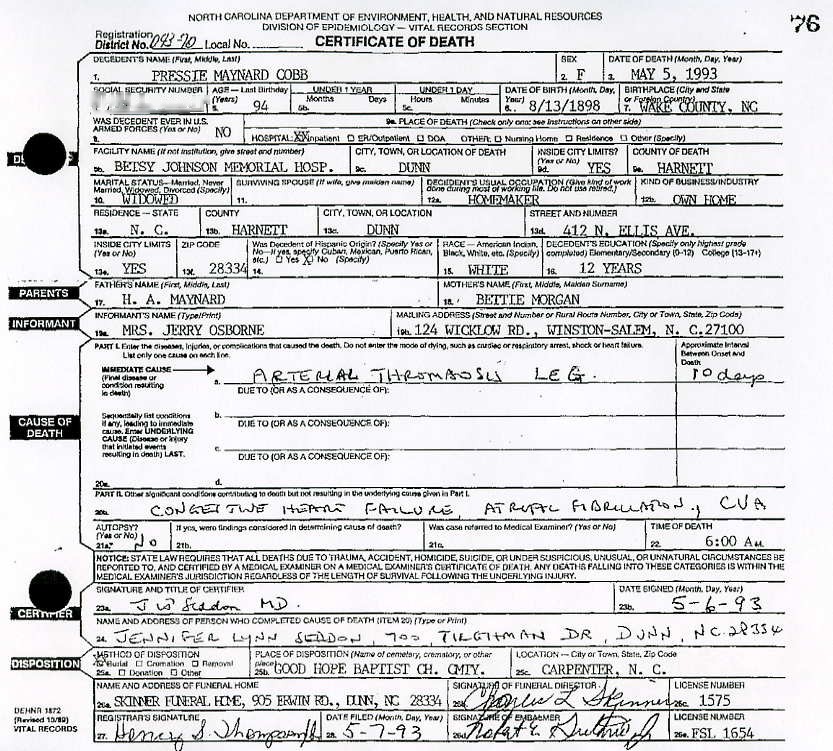 NORTH CAROLINA DEPARTMENT OF ENVIRONMENT, HEALTH, AND NATURAL RESOURCES
DIVISION OF EPIDEMIOLOGY — VITAL RECORDS SECTION
76
Registration
District No. 043-90 Local No.
CERTIFICATE OF DEATH
DECEDENT'S NAME (First, Middle, Last) SEX DATE OF DEATH (Month, Day, Year)
1. PRESSIE MAYNARD COBB 2. F 3. MAY 5, 1993
SOCIAL SECURITY NUMBER AGE — Last Birthday (Years) UNDER 1 YEAR UNDER 1 DAY DATE OF BIRTH (Month, Day, Year) BIRTHPLACE (City and State or Foreign Country)
Months Days Hours Minutes
5. 94 5b. 5c. 6. 8/13/1898 7. WAKE COUNTY, NC
WAS DECEDENT EVER IN U.S. ARMED FORCES (Yes or No) 9a. PLACE OF DEATH (Check only one; see instructions on other side)
8. NO HOSPITAL: XX Inpatient □ ER/Outpatient □ DOA OTHER: □ Nursing Home □ Residence □ Other (Specify)
FACILITY NAME (If not institution, give street and number) CITY, TOWN, OR LOCATION OF DEATH INSIDE CITY LIMITS? (Yes or No) COUNTY OF DEATH
9b. BETSY JOHNSON MEMORIAL HOSP. 9c. DUNN 9d. YES 9e. HARNETT
MARITAL STATUS—Married, Never Married, Widowed, Divorced (Specify) SURVIVING SPOUSE (If wife, give maiden name) DECEDENT'S USUAL OCCUPATION (Give kind of work done during most of working life. Do not use retired.) KIND OF BUSINESS/INDUSTRY
10. WIDOWED 11. 12a. HOMEMAKER 12b. OWN HOME
RESIDENCE — STATE COUNTY CITY, TOWN, OR LOCATION STREET AND NUMBER
13a. N. C. 13b. HARNETT 13c. DUNN 13d. 412 N. ELLIS AVE.
INSIDE CITY LIMITS (Yes or No) ZIP CODE Was Decedent of Hispanic Origin? (Specify Yes or No—If yes, specify Cuban, Mexican, Puerto Rican, etc.) □ Yes X No (Specify) RACE — American Indian, Black, White, etc. (Specify) DECEDENT'S EDUCATION (Specify only highest grade completed) Elementary/Secondary (0-12) College (13-17+)
13e. YES 13f. 28334 14. 15. WHITE 16. 12 YEARS
PARENTS
FATHER'S NAME (First, Middle, Last) MOTHER'S NAME (First, Middle, Maiden Surname)
17. H. A. MAYNARD 18. BETTIE MORGAN
INFORMANT
INFORMANT'S NAME (Type/Print) MAILING ADDRESS (Street and Number or Rural Route Number, City or Town, State, Zip Code)
19a. MRS. JERRY OSBORNE 19b. 124 WICKLOW RD., WINSTON-SALEM, N. C. 27100
PART I. Enter the diseases, injuries, or complications that caused the death. Do not enter the mode of dying, such as cardiac or respiratory arrest, shock or heart failure.
List only one cause on each line.
Approximate Interval Between Onset and Death
IMMEDIATE CAUSE (Final disease or condition resulting in death)
a. ARTERIAL THROMBOSIS LEG. 10 days
DUE TO (OR AS A CONSEQUENCE OF):
CAUSE OF DEATH
Sequentially list conditions if any, leading to immediate cause. Enter UNDERLYING CAUSE (Disease or injury that initiated events resulting in death) LAST.
b.
DUE TO (OR AS A CONSEQUENCE OF):
c.
DUE TO (OR AS A CONSEQUENCE OF):
20a. d.
PART II. Other significant conditions contributing to death but not resulting in the underlying cause given in Part I.
20b. CONGESTIVE HEART FAILURE, ATRIAL FIBRILLATION, CVA
AUTOPSY? (Yes or No) If yes, were findings considered in determining cause of death? Was case referred to Medical Examiner? (Yes or No) TIME OF DEATH
21a. No 21b. 21c. 22. 6:00 AM
NOTICE: STATE LAW REQUIRES THAT ALL DEATHS DUE TO TRAUMA, ACCIDENT, HOMICIDE, SUICIDE, OR UNDER SUSPICIOUS, UNUSUAL, OR UNNATURAL CIRCUMSTANCES BE
REPORTED TO, AND CERTIFIED BY A MEDICAL EXAMINER ON A MEDICAL EXAMINER'S CERTIFICATE OF DEATH. ANY DEATHS FALLING INTO THESE CATEGORIES IS WITHIN THE
MEDICAL EXAMINER'S JURISDICTION REGARDLESS OF THE LENGTH OF SURVIVAL FOLLOWING THE UNDERLYING INJURY.
CERTIFIER
SIGNATURE AND TITLE OF CERTIFIER DATE SIGNED (Month, Day, Year)
23a. Seddon MD. 23b. 5-6-93
NAME AND ADDRESS OF PERSON WHO COMPLETED CAUSE OF DEATH (ITEM 20) (Type or Print)
24. JENNIFER LYNN SEDDON, 700 TILGHMAN DR, DUNN, NC. 28334
DISPOSITION
METHOD OF DISPOSITION PLACE OF DISPOSITION (Name of cemetery, crematory, or other place) LOCATION — City or Town, State, Zip Code
Burial □ Cremation □ Removal
25a. □ Donation □ Other 25b. GOOD HOPE BAPTIST CH. CMTY. 25c. CARPENTER, N. C.
NAME AND ADDRESS OF FUNERAL HOME SIGNATURE OF FUNERAL DIRECTOR LICENSE NUMBER
26a. SKINNER FUNERAL HOME, 905 ERWIN RD., DUNN, NC 28334 26b. Charles L. Skinner 26c. 1575
DEHNR 1872
(Revised 10/89)
VITAL RECORDS
REGISTRAR'S SIGNATURE DATE FILED (Month, Day, Year) SIGNATURE OF EMBALMER LICENSE NUMBER
27. Henry S. Thompson 28. 5-7-93 26d. Robert E. 26e. FSL 1654